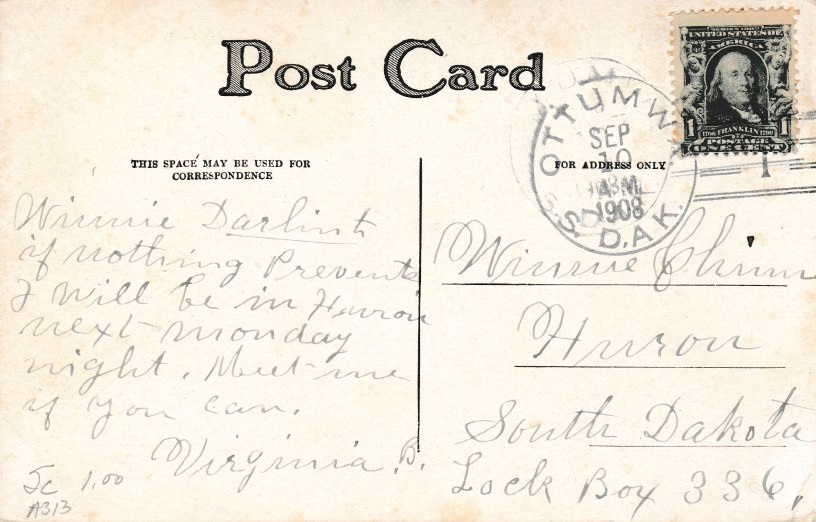 Post Card
THIS SPACE MAY BE USED FOR
CORRESPONDENCE
FOR ADDRESS ONLY
SERIES 1902
UNITED STATES OF
AMERICA
1706 FRANKLIN 1790
POSTAGE
1 ONE CENT 1
OTTUMWA
SEP
10
AM
1908
S. DAK.
1
Winnie Darlint
if nothing Prevents
I Will be in Huron
next monday
night. Meet me
if you can.
Virginia. B.
Winnie
Huron
South Dakota
Lock Box 336,
1.00
A313